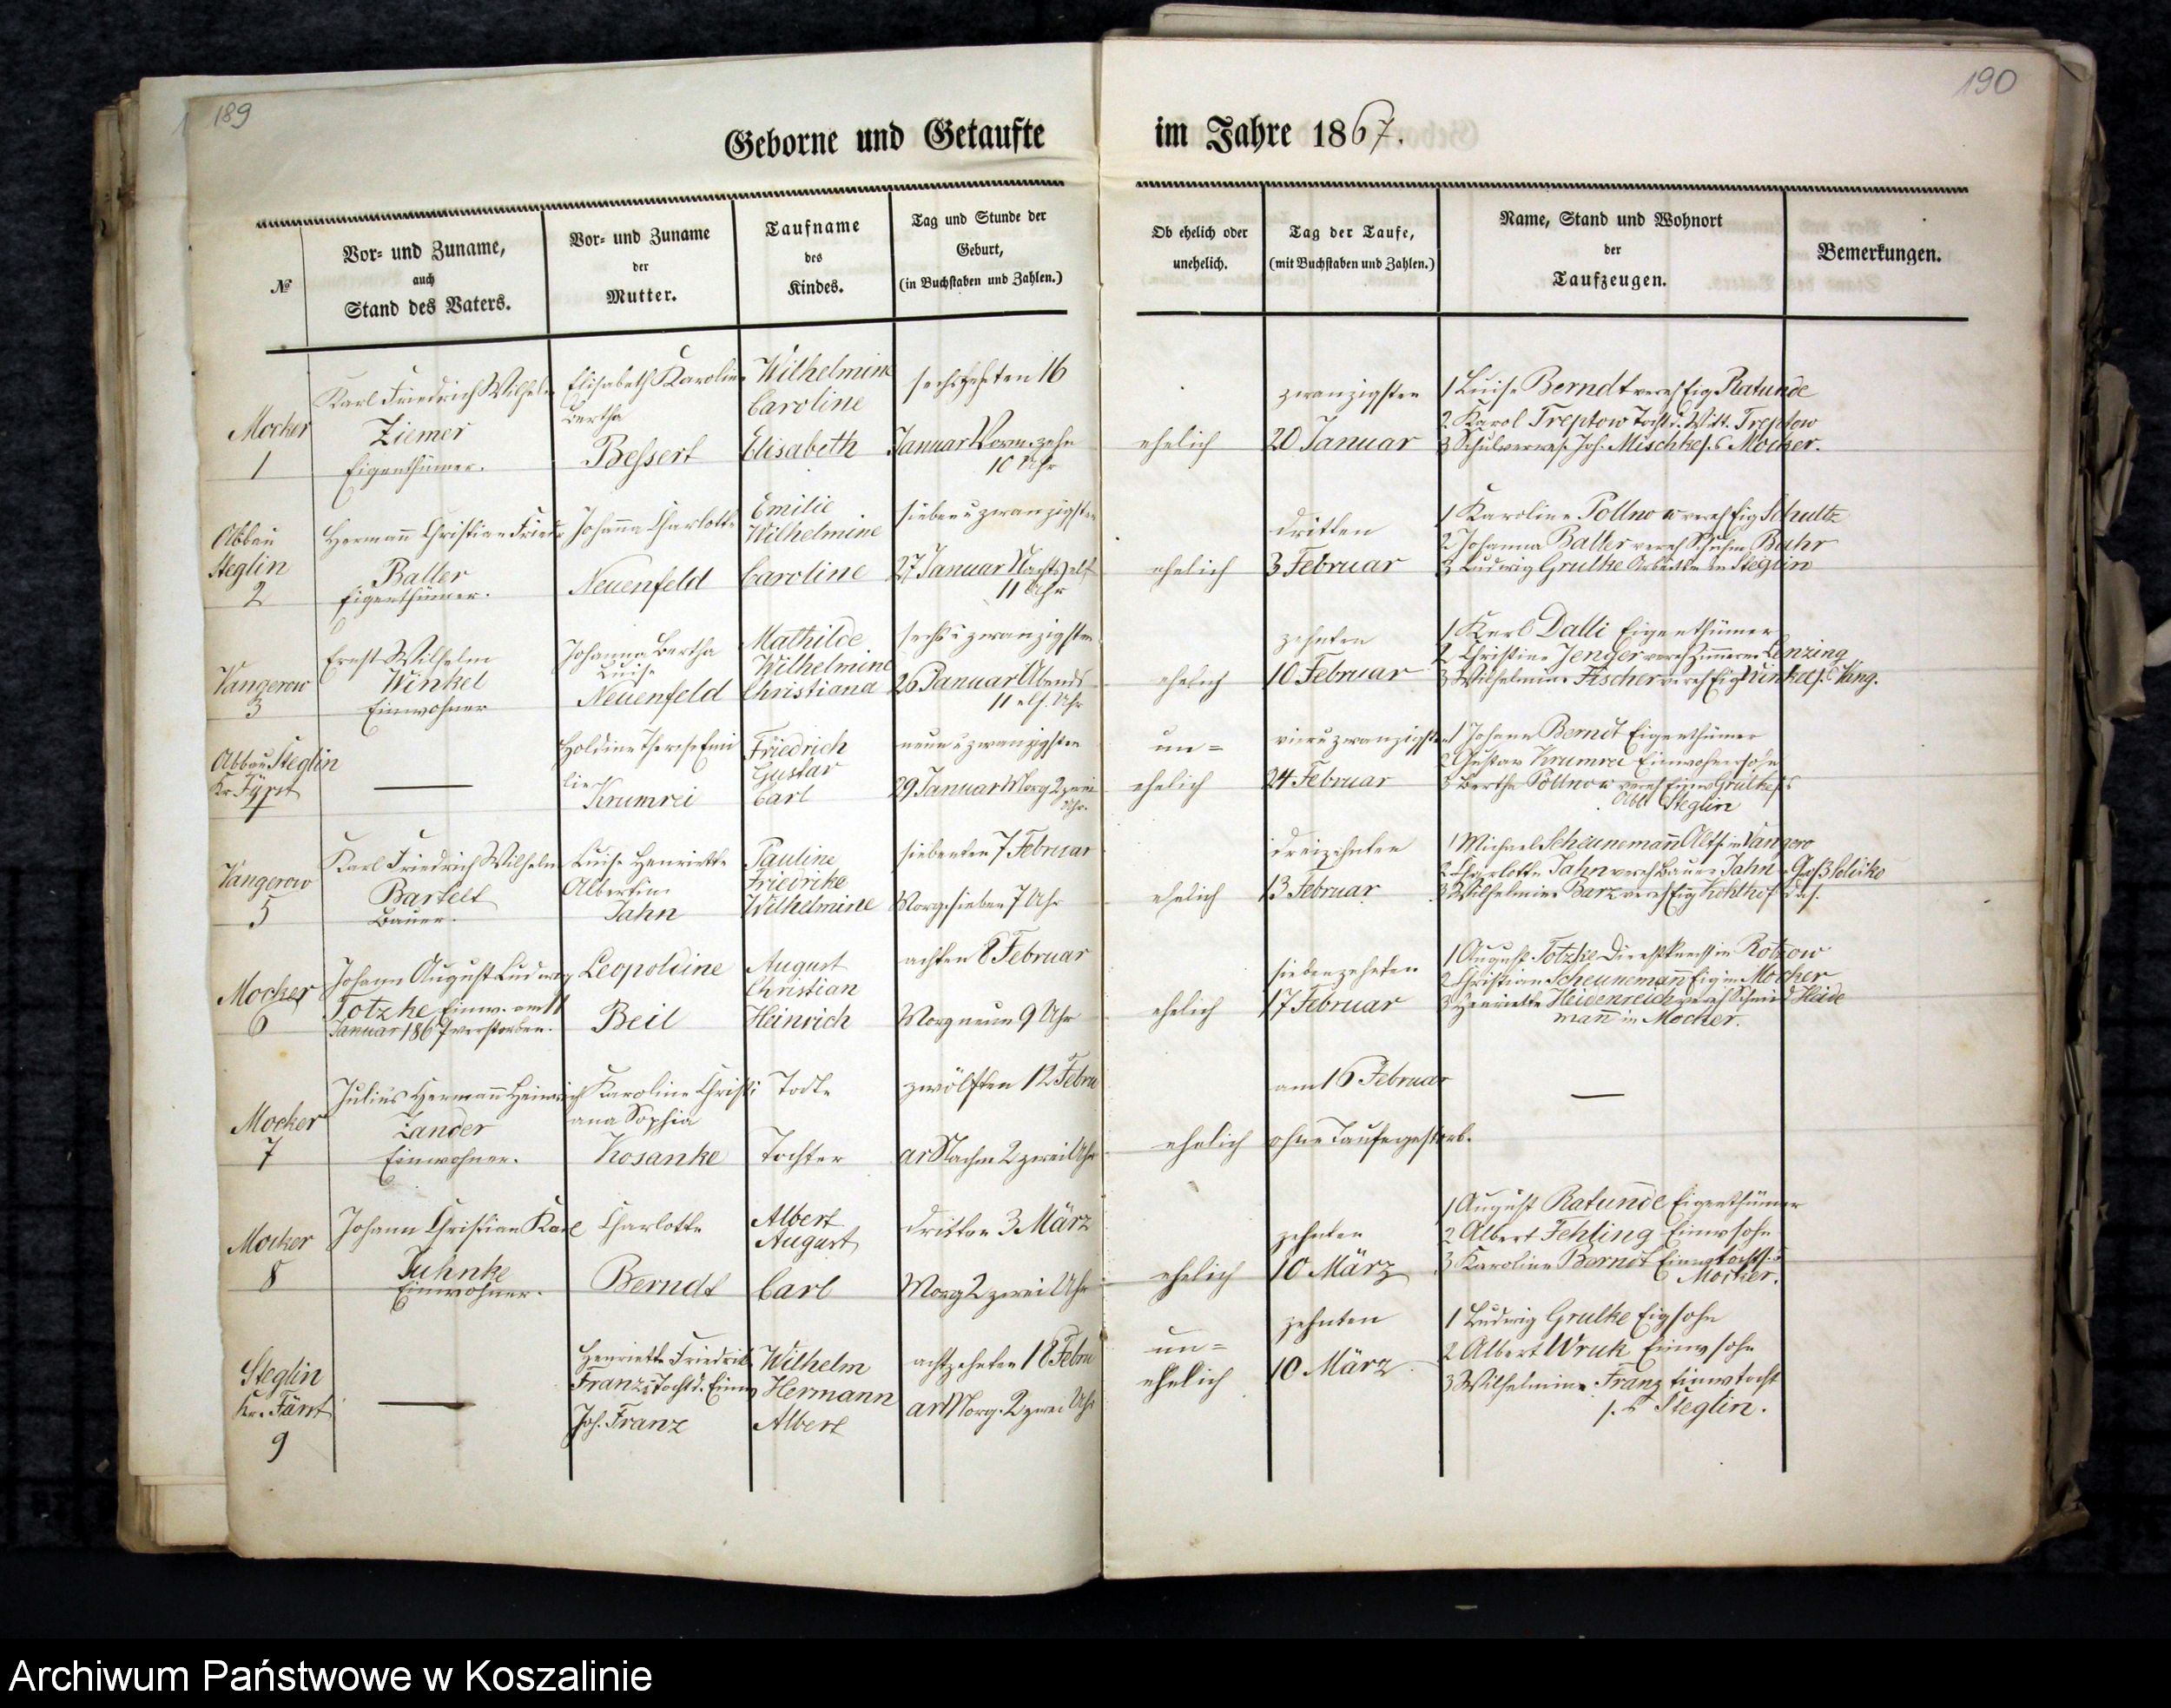 189
190
Geborne und Getaufte
im Jahre 1867.
№
Vor- und Zuname,
auch
Stand des Vaters.
Vor- und Zuname
der
Mutter.
Taufname
des
Kindes.
Tag und Stunde der
Geburt,
(in Buchstaben und Zahlen.)
Ob ehelich oder
unehelich.
Tag der Taufe,
(mit Buchstaben und Zahlen.)
Name, Stand und Wohnort
der
Taufzeugen.
Bemerkungen.
Mocker
1
Karl Friedrich Wilhelm
Ziemer
Eigenthümer.
Elisabeth Karoline
Bertha
Bessert
Wilhelmine
Caroline
Elisabeth
sechszehnten 16
Januar Vorm. zehn
10 Uhr
ehelich
zwanzigsten
20 Januar
1 Luise Berndt vereh Eig Ratunde
2 Karol Treptow Tocht d. Witt. Treptow
3 Schulverwes. Joh. Mischke s. c Mocker.
Abbau
Steglin
2
Hermann Christian Friedr
Baller
Eigenthümer.
Johanna Charlotte
Neuenfeld
Emilie
Wilhelmine
Caroline
sieben u zwanzigsten
27 Januar Nachts elf
11 Uhr
ehelich
dritten
3 Februar
1 Karoline Pollnow vereh Eig Schultz
2 Johanna Baller vereh Bahr
3 Ludwig Grulke in Steglin
Vangerow
3
Ernst Wilhelm
Winkel
Einwohner
Johanna Bertha
Luise
Neuenfeld
Mathilde
Wilhelmine
Christiana
sechs u zwanzigsten
26 Januar Abends
11 elf. Uhr
ehelich
zehnten
10 Februar
1 Karl Dalli Eigenthümer
2 Christine Jenger vereh Zimmerm Lenzing
3 Wilhelmine Fischer vereh Eig Vang.
Abbau Steglin
Kr. Fürst
4
Holdine Therese Emi
lie
Krumrei
Friedrich
Gustav
Carl
neun u zwanzigsten
29 Januar Morg 2 zwei
Uhr.
un=
ehelich
vier u zwanzigsten
24 Februar
1 Johann Berndt Eigenthümer
2 Gustav Krumrei Einwohnersohn
3 Bertha Pollnow vereh Einw Grulke
Abb Steglin
Vangerow
5
Karl Friedrich Wilhelm
Bartelt
Bauer.
Luise Henriette
Albertine
Jahn
Pauline
Friedrike
Wilhelmine
siebenten 7 Februar
Morg. sieben 7 Uhr
ehelich
dreizehnten
13 Februar
1 Michael Scheunemann Altsitz in Vangero
2 Charlotte Jahn vereh Bauer Jahn
3 Wilhelmine Barz vereh Eig Kohlhof
Mocker
6
Johann August Ludwig
Totzke Einw. am 11
Januar 1867 verstorben.
Leopoldine
Beil
August
Christian
Heinrich
achten 8 Februar
Morg neun 9 Uhr
ehelich
siebenzehnten
17 Februar
1 August Totzke Dienstknecht in Rotzow
2 Christian Scheunemann Eig in Mocker
3 Henriette Heidenreich vereh Schmied Heide
mann in Mocker.
Mocker
7
Julius Hermann Heinrich
Zander
Einwohner.
Karoline Christi
ana Sophia
Kosanke
Todte
Tochter
zwölften 12 Febru
ar Nachm 2 zwei Uhr
ehelich
am 16 Februar
ohne Taufe gestorb.
Mocker
8
Johann Christian Karl
Juhnke
Einwohner.
Charlotte
Berndt
Albert
August
Carl
dritten 3 März
Morg 2 zwei Uhr
ehelich
zehnten
10 März
1 August Ratunde Eigenthümer
2 Albert Fehling Einwsohn
3 Karoline Berndt Einwtocht
Mocker.
Steglin
Kr. Fürst
9
Henriette Friedrik
Franz, Tocht d. Einw
Joh. Franz
Wilhelm
Hermann
Albert
achtzehnten 18 Febru
ar Morg. 2 zwei Uhr
un=
ehelich
zehnten
10 März
1 Ludwig Grulke Eigsohn
2 Albert Wruk Einwsohn
3 Wilhelmine Franz Einwtocht
s. c Steglin.
Archiwum Państwowe w Koszalinie